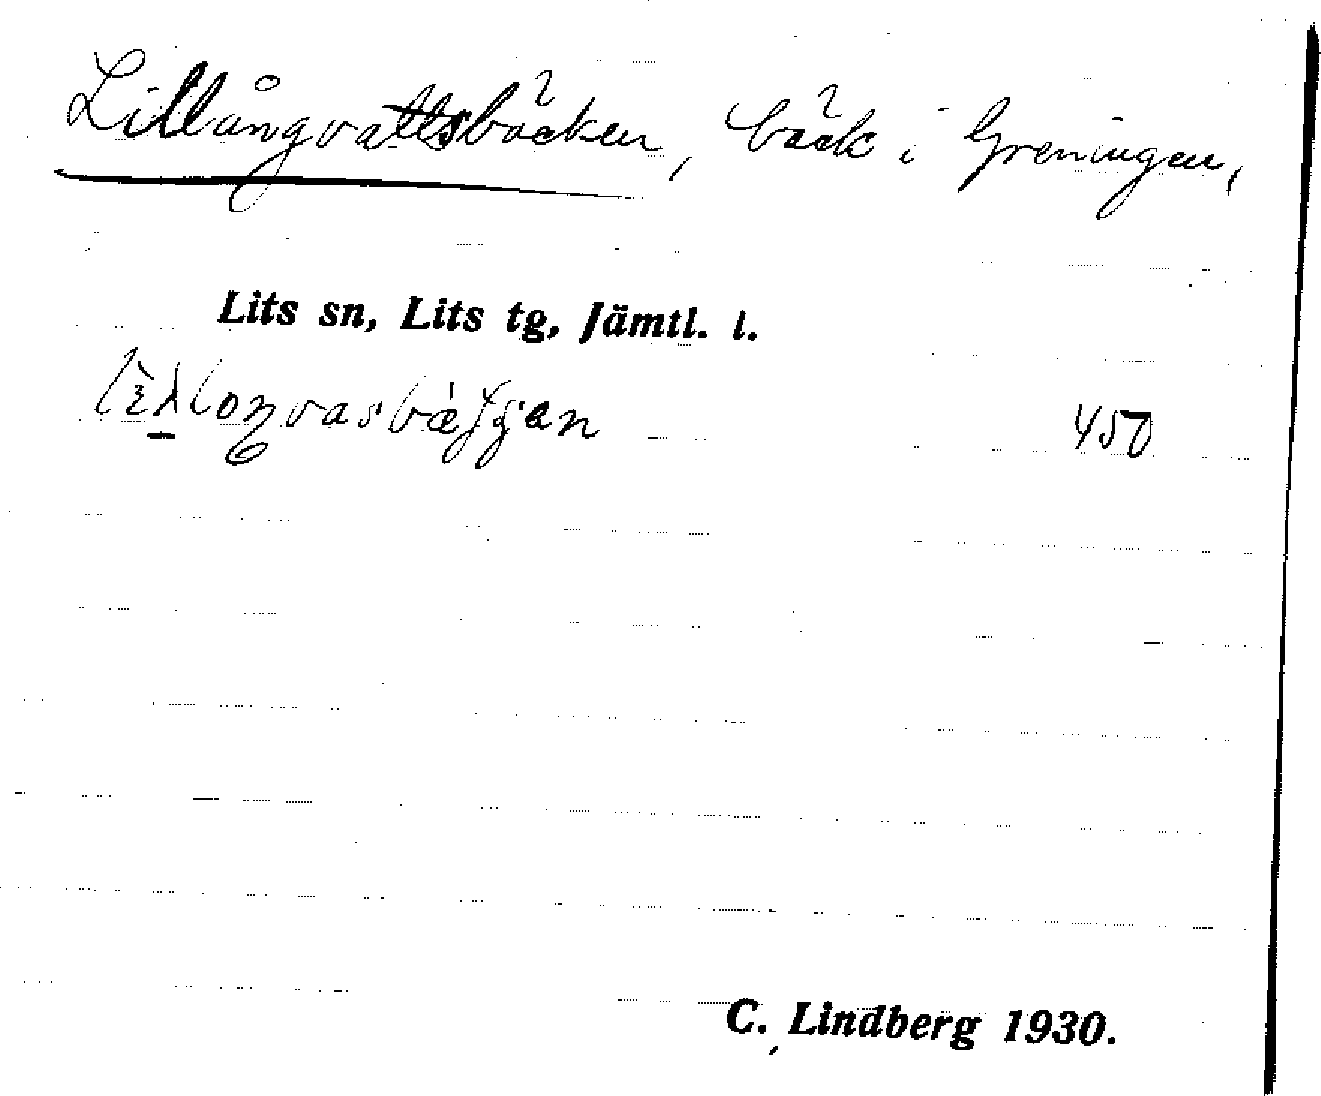 Lillångvattsbäcken, bäck i Greningen,
Lits sn, Lits tg, Jämtl. l.
450
C. Lindberg 1930.